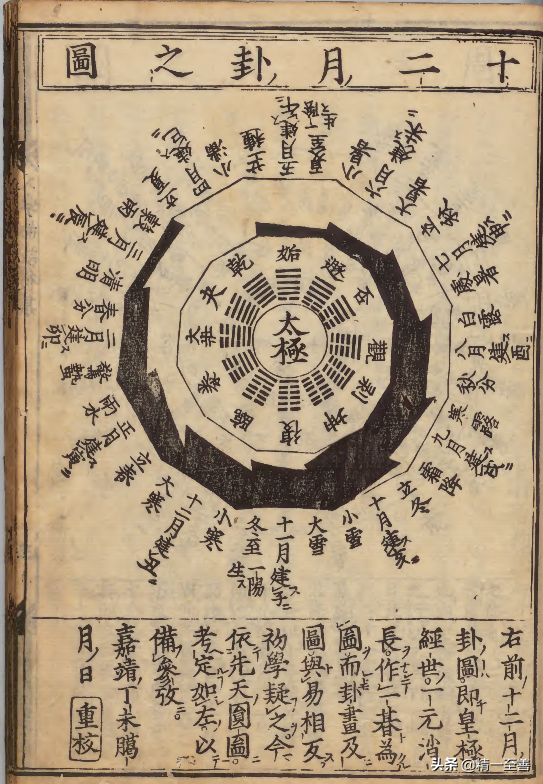 十二月卦之圖
五月建午
夏至一陰生
小暑
六月建未
大暑
立秋
七月建申
處暑
白露
八月建酉
秋分
寒露
九月建戌
霜降
立冬
十月建亥
小雪
大雪
十一月建子
冬至一陽生
小寒
十二月建丑
大寒
立春
正月建寅
雨水
驚蟄
二月建卯
春分
清明
三月建辰
穀雨
立夏
四月建巳
小滿
芒種
姤
遯
否
觀
剝
坤
復
臨
泰
大壯
夬
乾
太極
右前十二月
卦圖即皇極
經世一元消
長作二碁為
圖而卦畫及
圖與易相反
初學疑之今
依先天圓圖
考定如左以
備參攷
嘉靖丁未臈
月日 重校
头条 @精一至善